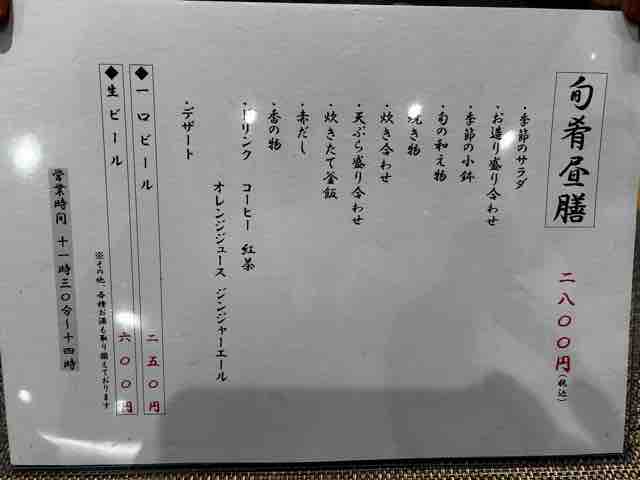 旬肴昼膳
二八〇〇円(税込)
・季節のサラダ
・お造り盛り合わせ
・季節の小鉢
・旬の和え物
・焼き物
・炊き合わせ
・天ぷら盛り合わせ
・炊きたて釜飯
・赤だし
・香の物
・ドリンク コーヒー 紅茶
オレンジジュース ジンジャーエール
・デザート
◆一口ビール 二五〇円
◆生ビール 六〇〇円
※その他、各種お酒も取り揃えております
営業時間 十一時三〇分〜十四時